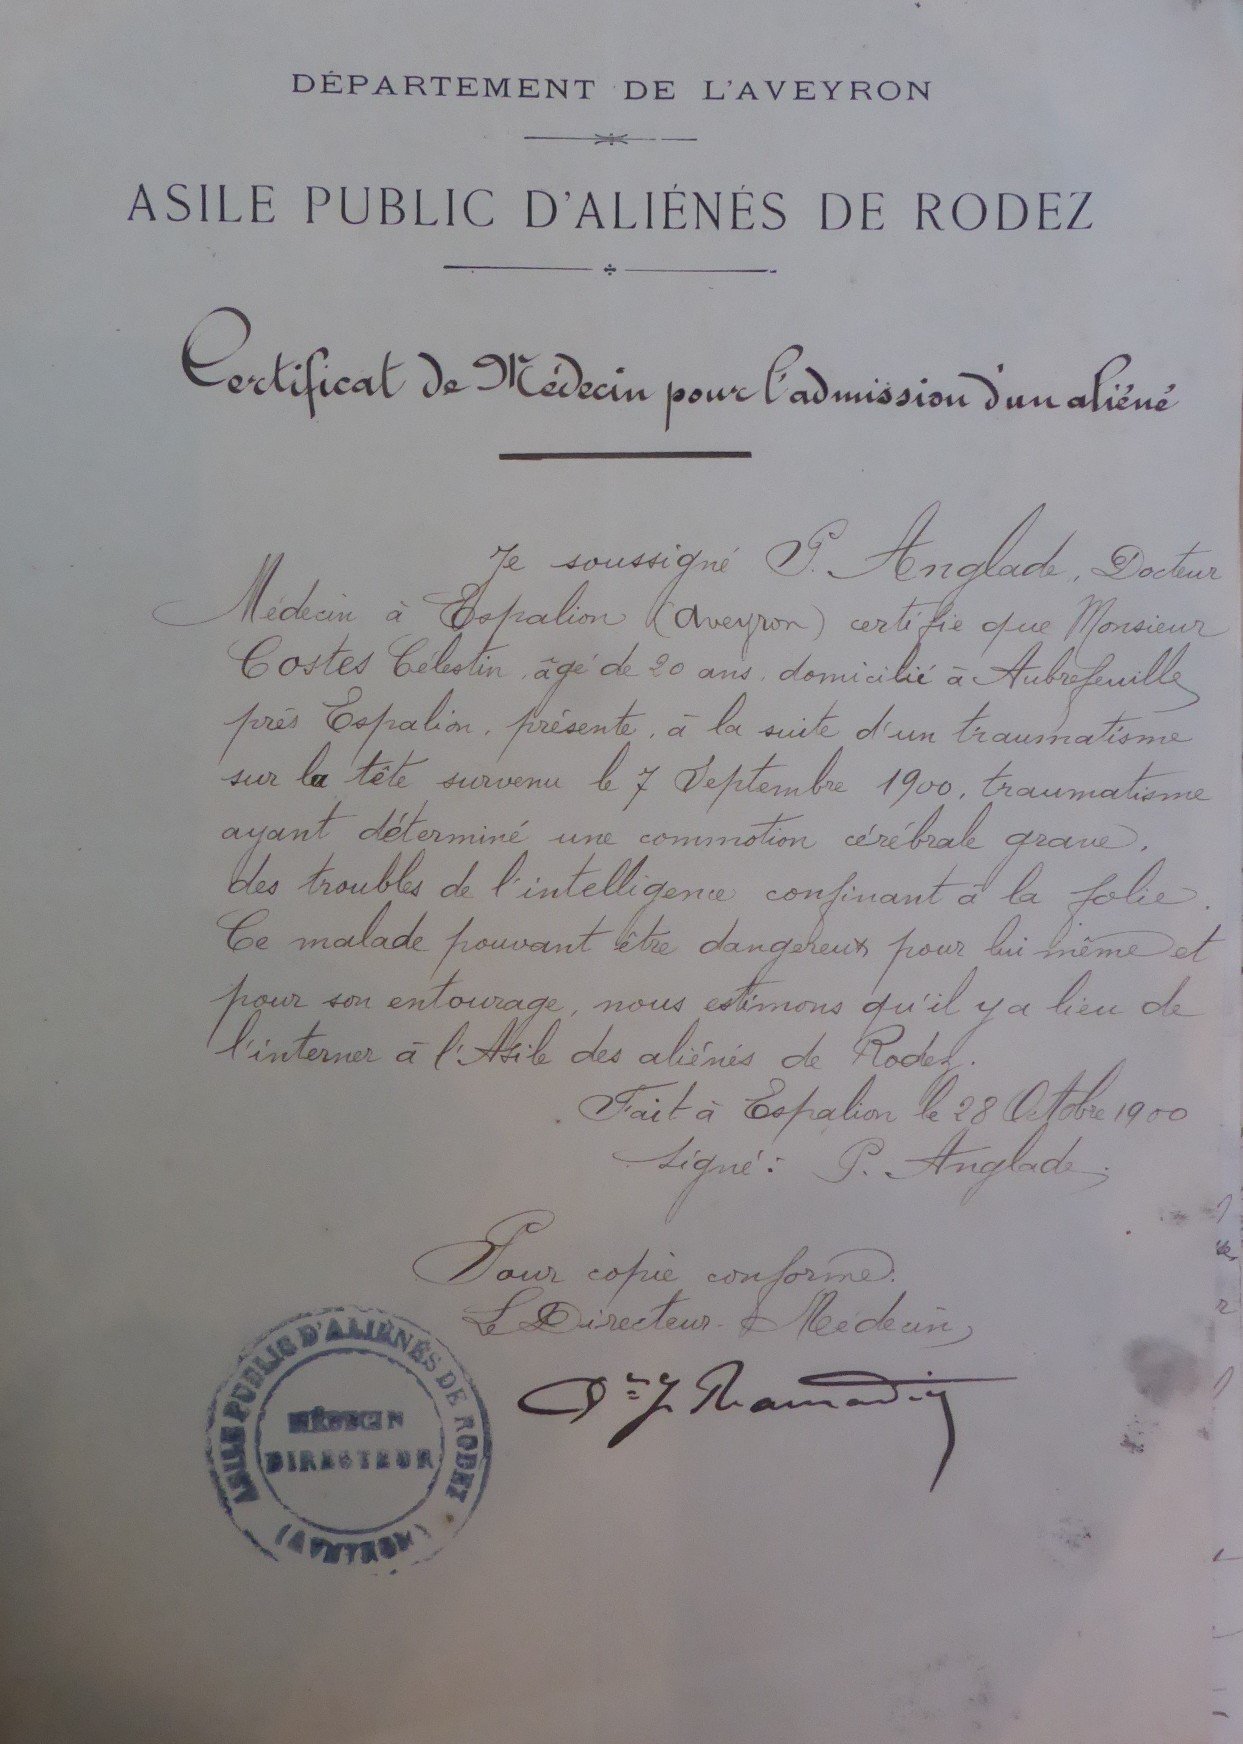 DÉPARTEMENT DE L'AVEYRON
ASILE PUBLIC D'ALIÉNÉS DE RODEZ
Certificat de Médecin pour l'admission d'un aliéné
Je soussigné P. Anglade, Docteur
Médecin à Espalion (Aveyron) certifie que Monsieur
Costes Célestin, âgé de 20 ans, domicilié à Aubrefeuille
près Espalion, présente, à la suite d'un traumatisme
sur la tête survenu le 7 Septembre 1900, traumatisme
ayant déterminé une commotion cérébrale grave,
des troubles de l'intelligence confinant à la folie.
Ce malade pouvant être dangereux pour lui même et
pour son entourage, nous estimons qu'il y a lieu de
l'interner à l'Asile des aliénés de Rodez.
Fait à Espalion le 28 Octobre 1900
Signé: P. Anglade.
Pour copie conforme.
Le Directeur-Médecin,
Dr J. Ramadier
ASILE PUBLIC D'ALIÉNÉS DE RODEZ
MÉDECIN
DIRECTEUR
(AVEYRON)